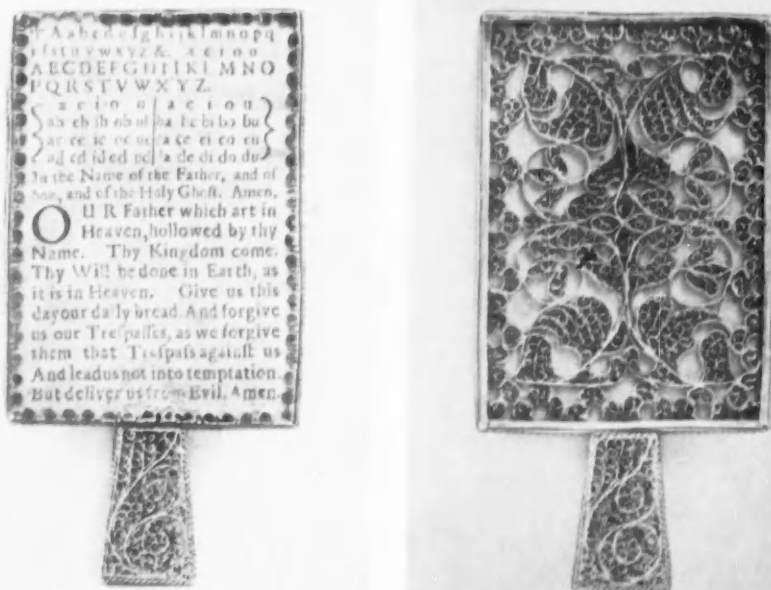 A a b c d e f g h i j k l m n o p q
r ſ s t u v w x y z &. a e i o u
A B C D E F G H I J K L M N O
P Q R S T V W X Y Z.
a e i o u | a e i o u
ab eb ib ob ub | ba be bi bo bu
ac ec ic oc uc | ca ce ci co cu
ad ed id od ud | da de di do du
In the Name of the Father, and of
Son, and of the Holy Ghoſt. Amen.
OUR Father which art in
Heaven, hollowed by thy
Name. Thy Kingdom come.
Thy Will be done in Earth, as
it is in Heaven. Give us this
day our daily bread. And forgive
us our Treſpaſſes, as we forgive
them that Treſpaſs againſt us
And lead us not into temptation
But deliver us from Evil. Amen.